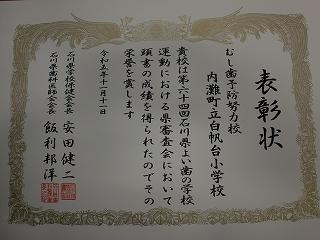 表彰状
むし歯予防努力校
内灘町立白帆台小学校
貴校は第六十四回石川県よい歯の学校
運動における県審査会において
頭書の成績を得られたのでその
栄誉を賞します
令和五年十一月十一日
石川県学校保健会会長 安田健二
石川県歯科医師会会長 飯利邦洋